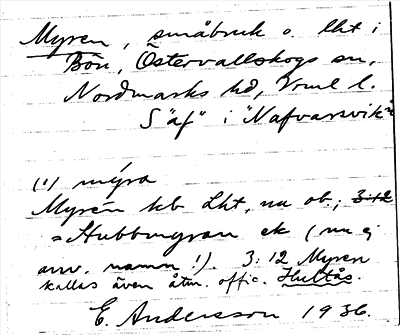 Myren, småbruk o. lht i
Bön, Östervallskogs sn,
Nordmarks hd, Vrml l.
S "äf" i "Nafvarsvik"
(!) mýra
Myrén hb Lht, nu ob.; 3:12
= Stubbmyran ek (nu ej
anv. namn!). 3:12 Myren
kallas även åtm. offic. Hultås.
E. Andersson 1936.